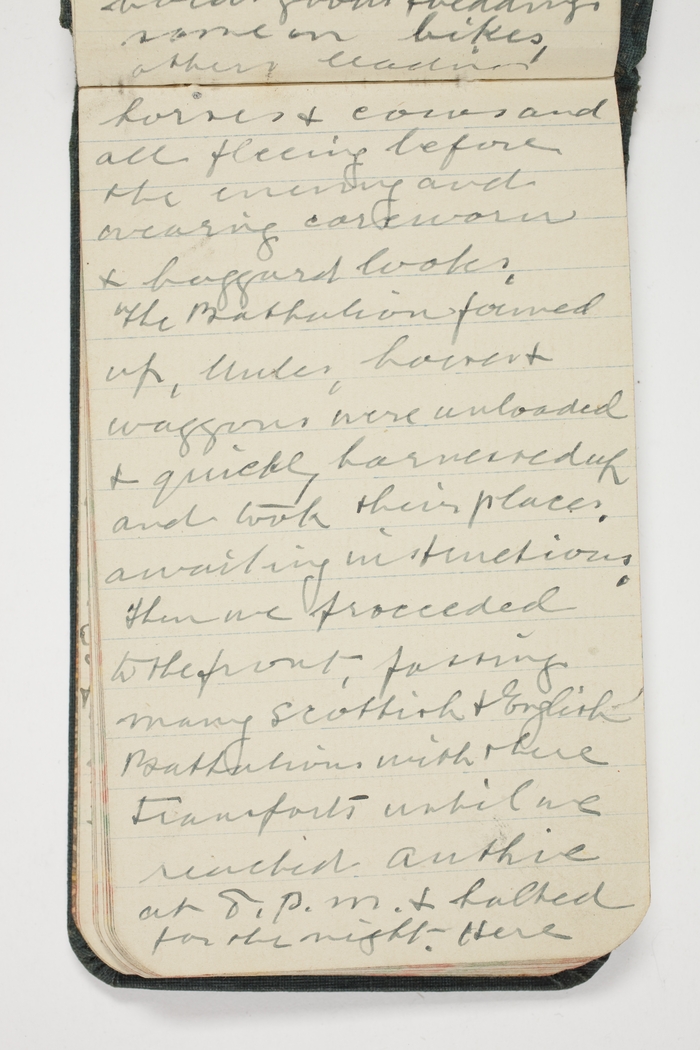 goods & beddings
some on bikes,
others leading
horses & cows and
all fleeing before
the enemy and
wearing careworn
& haggard looks.
The Bathalion formed
up, Mules, horses &
waggons were unloaded
& quickly harnessed up
and took their places,
awaiting instructions.
Then we proceeded
to the front, passing
many Scottish & English
Bathalions with there
transports until we
reached Authie
at 8. p. m. & halted
for the night. Here